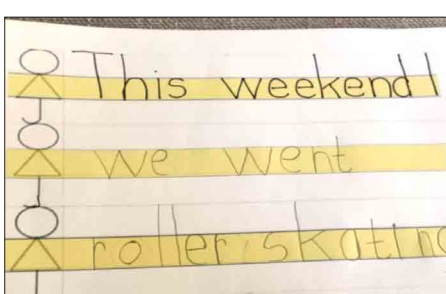 This weekend I
we went
roller skating